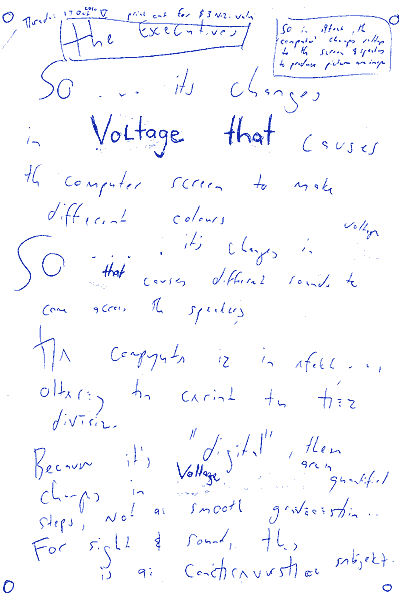 print out for $3 NZ. vola
The Executives
So in effect, the
computer changes voltage
to the screen & speakers
to produce picture and
So ... its changes
in Voltage that causes
the computer screen to make
different colours
voltage
So ... it's changes in
that causes different sounds to
come across the speakers,
The computer is in effect ....
altering the current to the
Because it's "digital", then
Voltage quantified
changes in
steps, not as smooth
For sight & sound, this
is a subject.